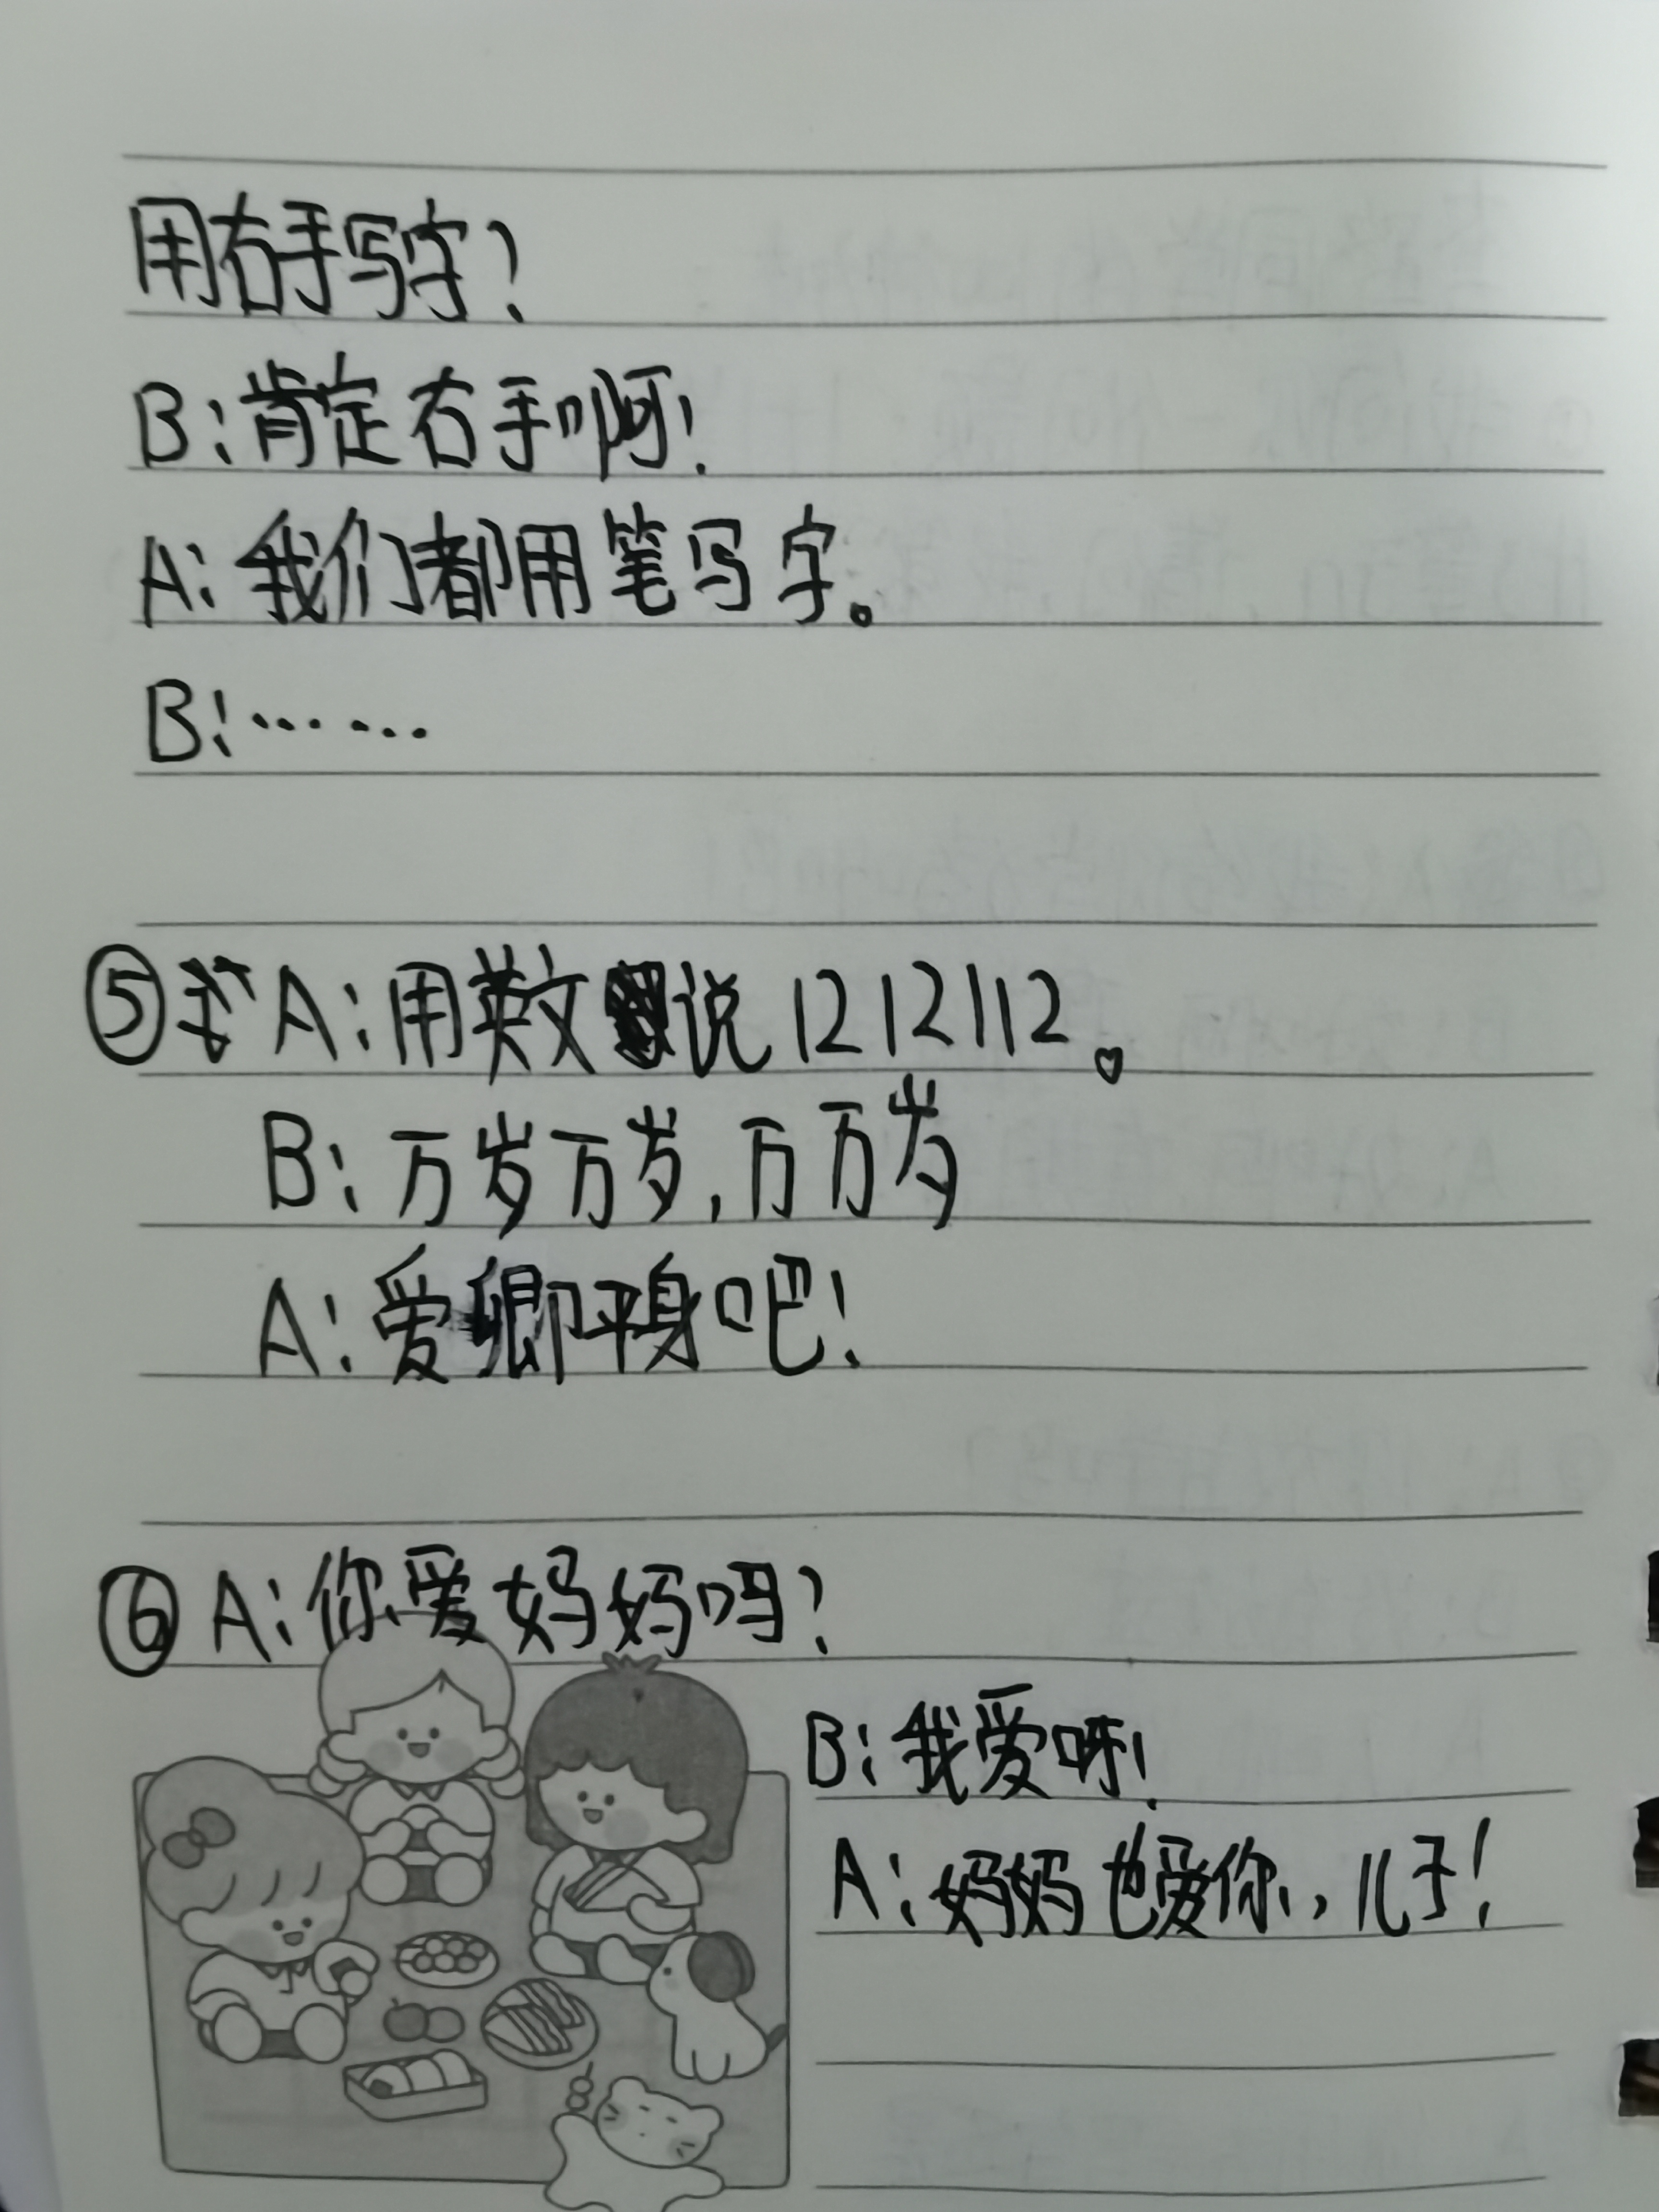 用右手写字？
B：肯定右手啊！
A：我们都用笔写字。
B：……
⑤A：用英文说1212112。
B：万岁万岁，万万岁
A：爱卿平身吧！
⑥A：你爱妈妈吗？
B：我爱呀！
A：妈妈也爱你，儿子！